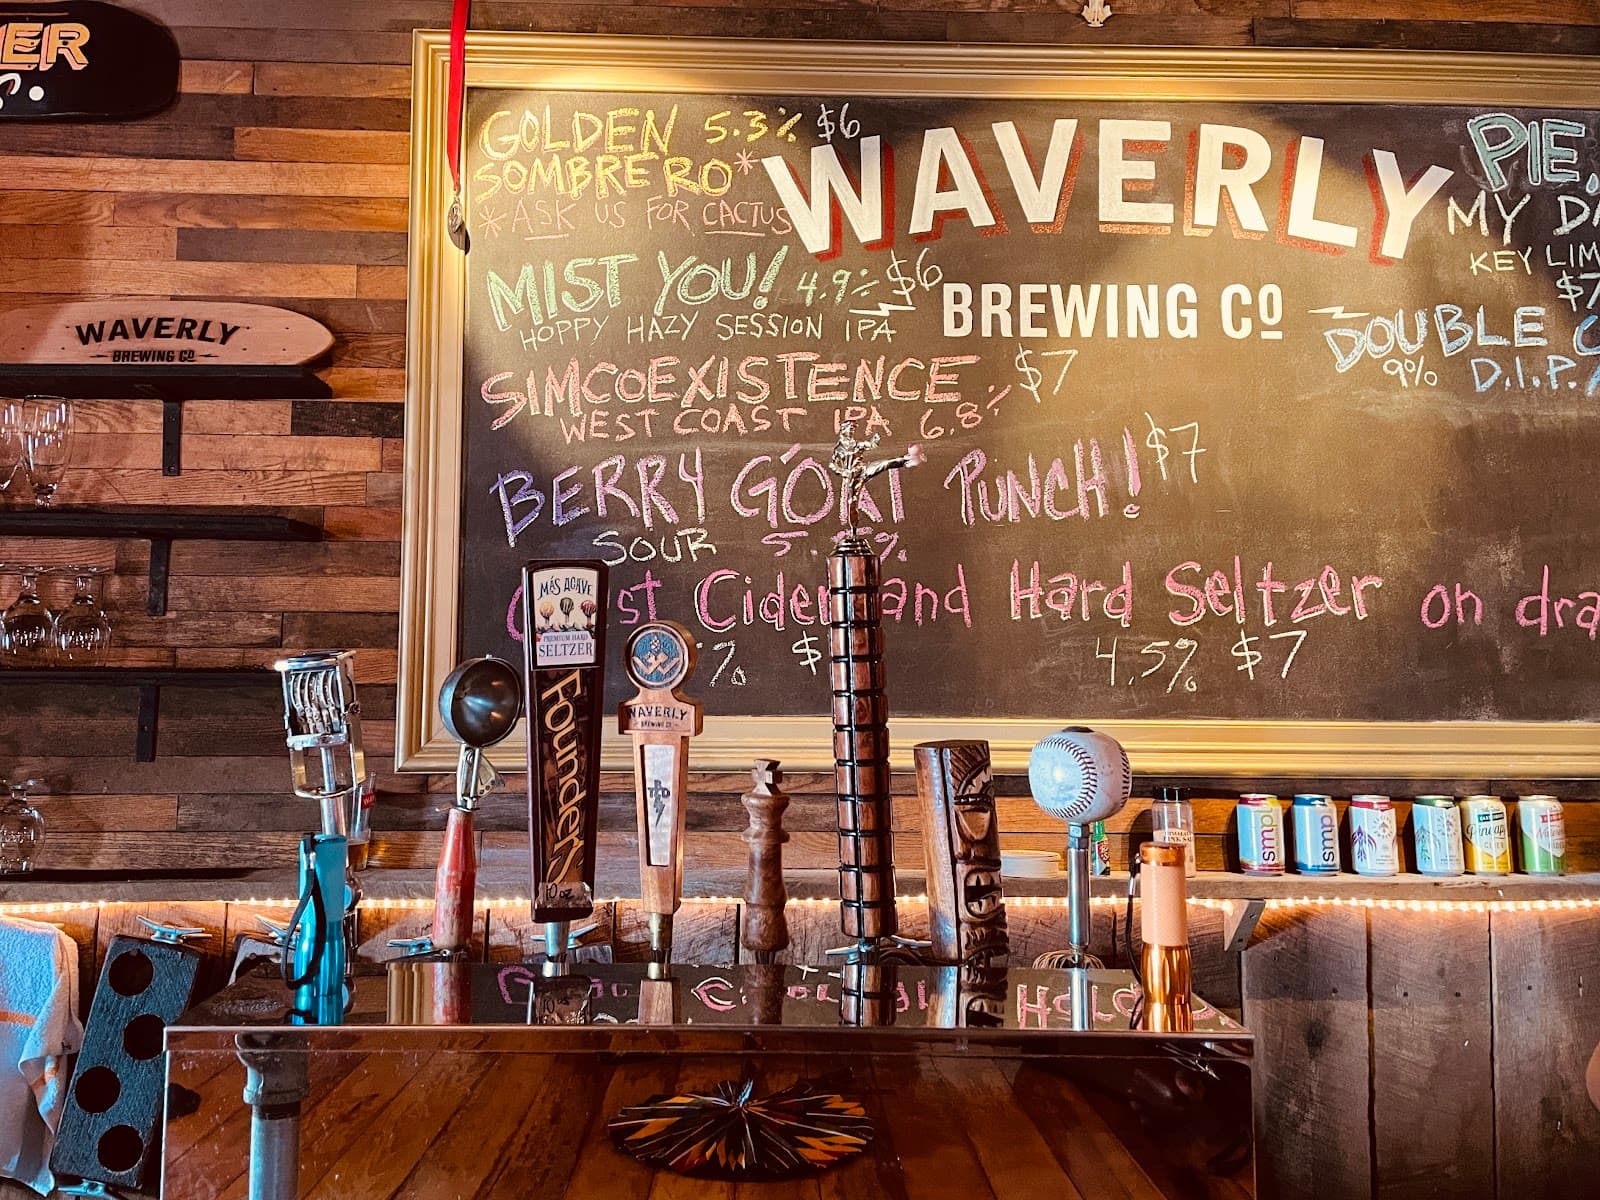 ER
GOLDEN 5.3% $6
SOMBRERO*
*ASK US FOR CACTUS
WAVERLY
BREWING CO
MIST YOU! 4.9% $6
HOPPY HAZY SESSION IPA
SIMCOEXISTENCE $7
WEST COAST IPA 6.8%
BERRY GOAT PUNCH! $7
SOUR
Cider and Hard Seltzer on dra
% $
4.5% $7
PIE,
MY DA
KEY LIM
$7
DOUBLE C
9% D.I.P.A
WAVERLY
BREWING CO
MÁS AGAVE
PREMIUM HARD
SELTZER
FOUNDERS
10 oz
WAVERLY
BREWING CO
smpl
smpl